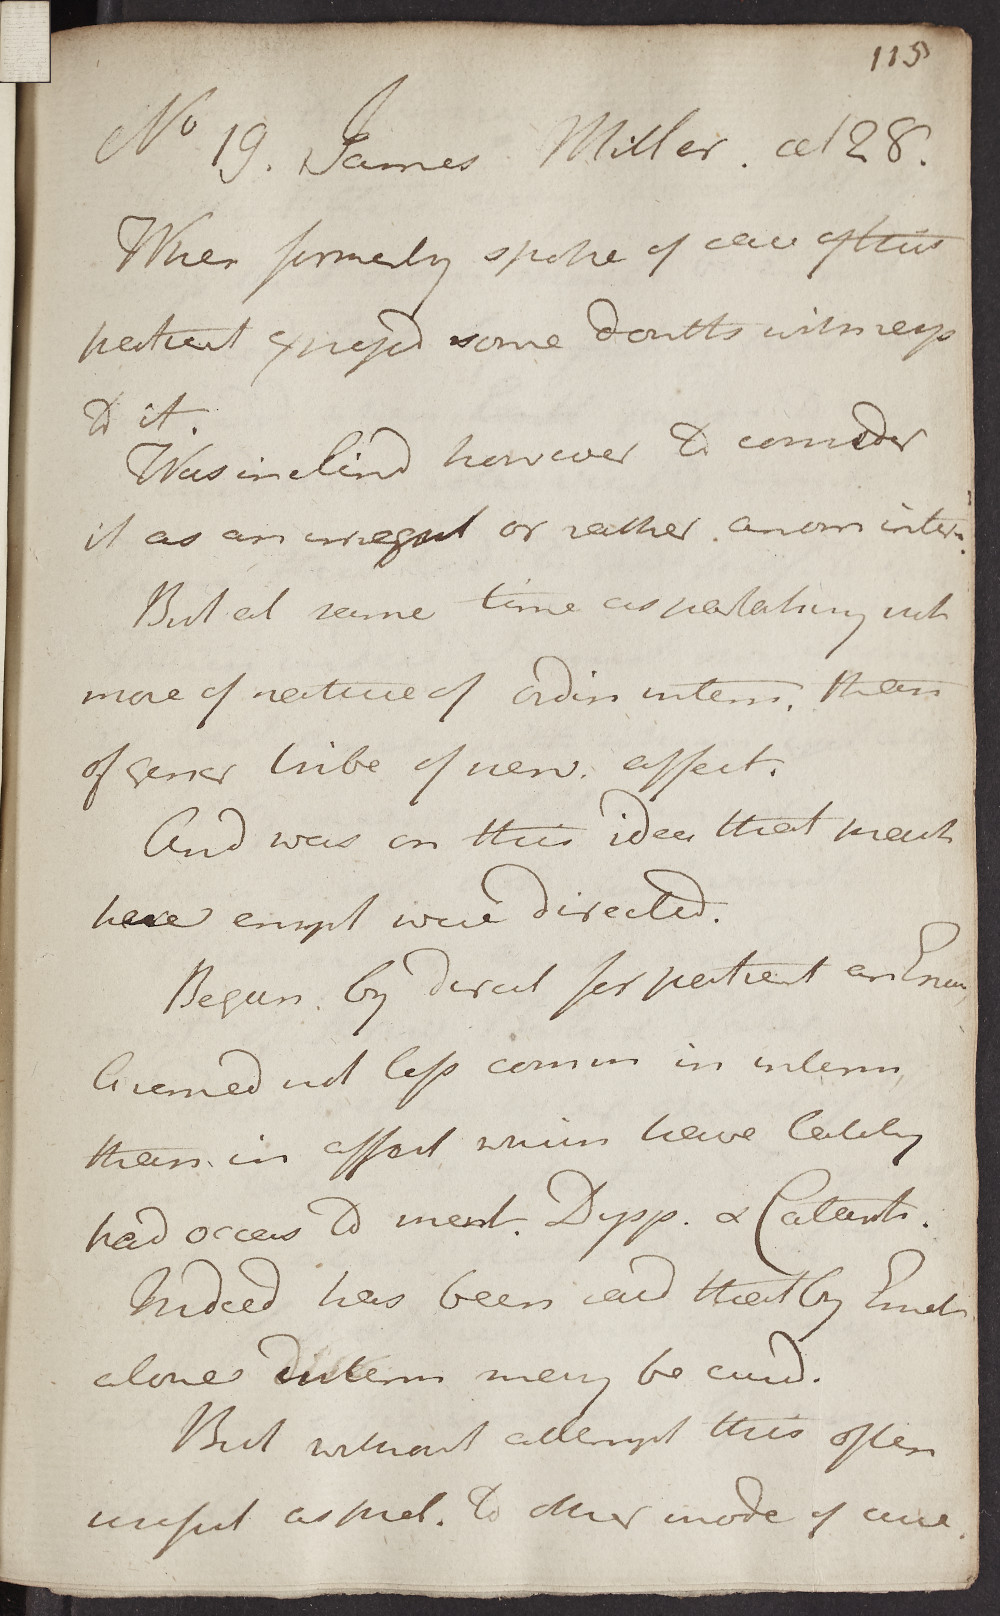 115
No 19. James Miller. aet 28.
When formerly spoke of case of this
patient expressd some doubts with resp
to it.
Was inclind however to consider
it as an irregul or rather anom interm.
But at same time as partaking not
more of nature of ordin interm. than
of gener tribe of nerv. affect.
And was on this idea that
here empl were directed.
Begun by direct for patient an Emet,
a remed not less comm in interm
than in affect which have lately
had occas to ment. Dysp. & Catarrh.
Indeed has been said that by Emet
alone interm may be curd.
But without attempt this often
useful as prel. to other mode of cure.